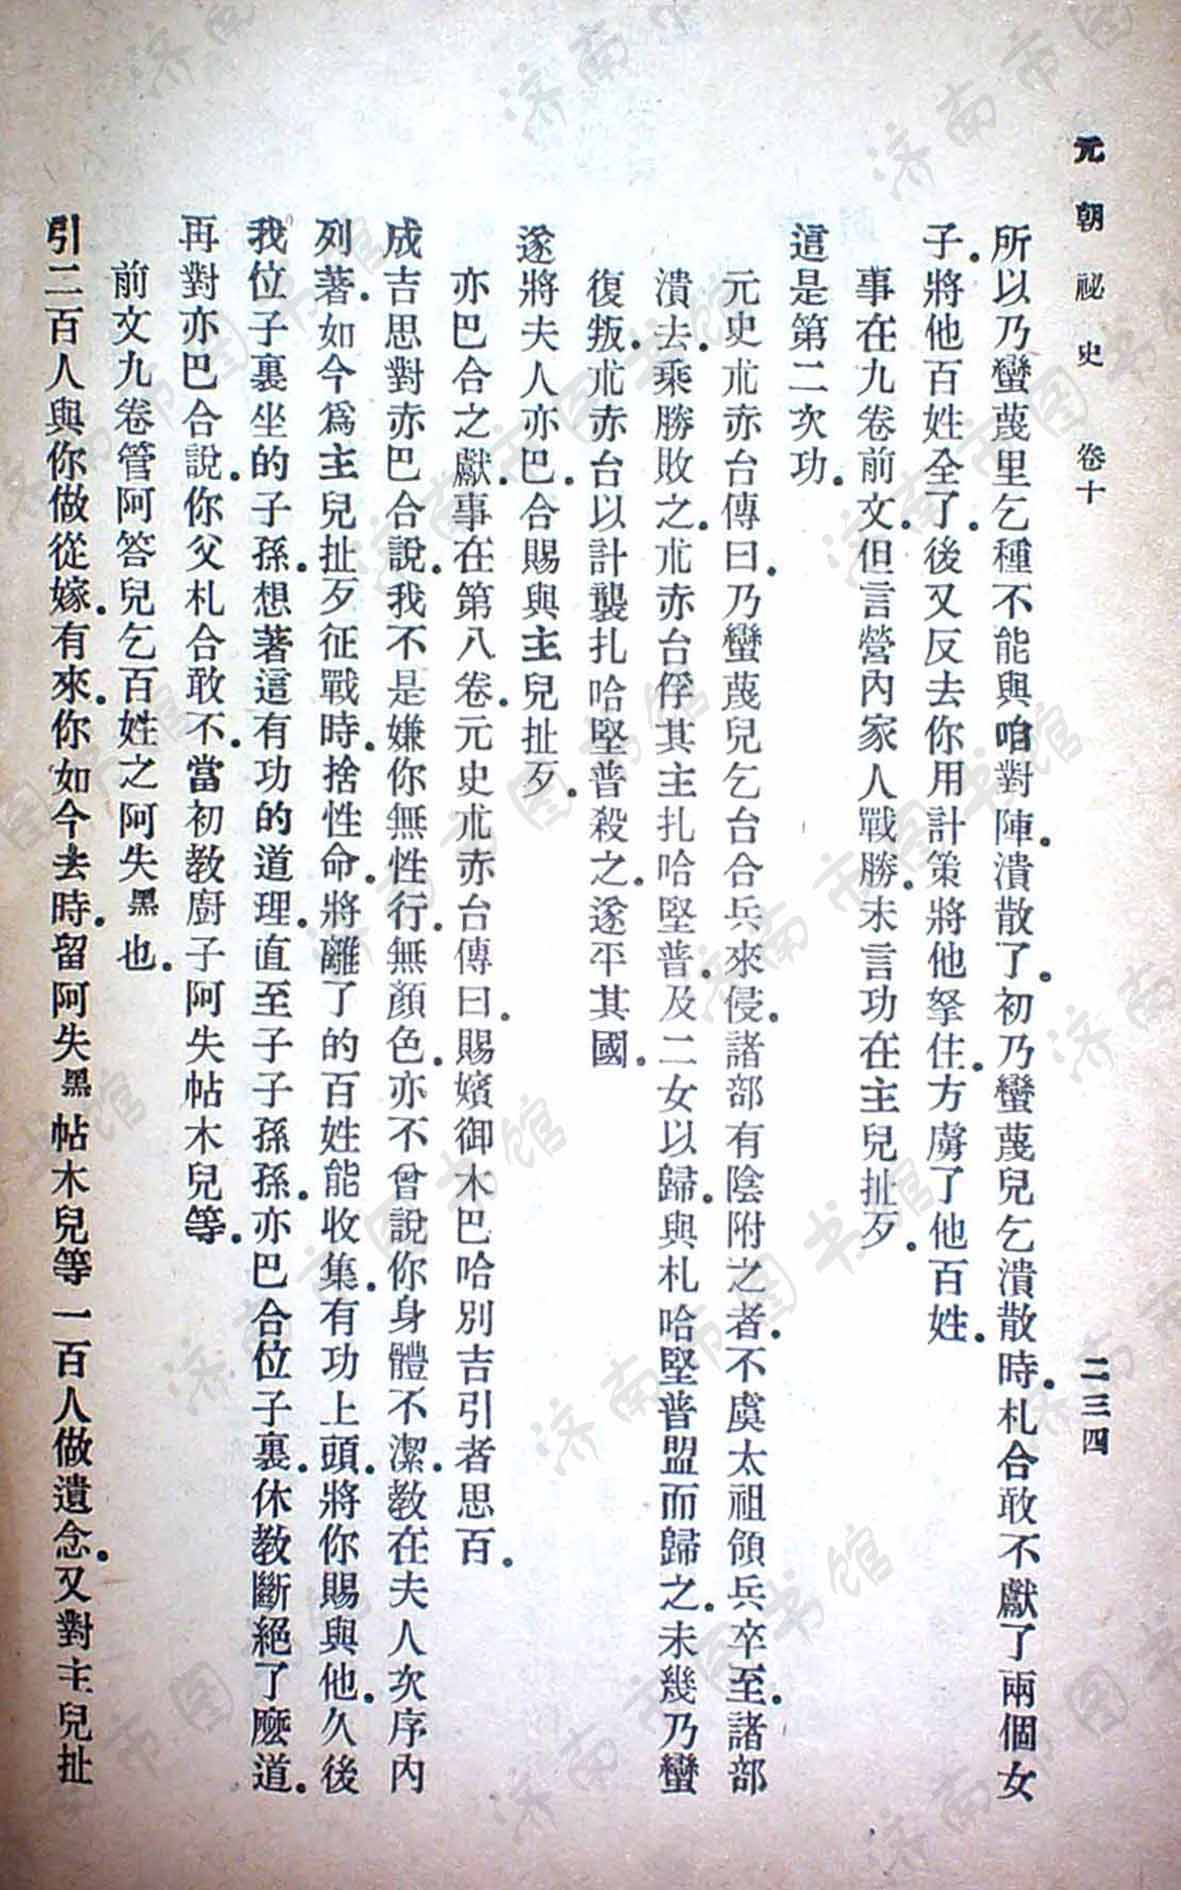 元朝祕史 卷十 二三四
所以乃蠻蔑里乞種不能與咱對陣。潰散了。初乃蠻蔑兒乞潰散時。札合敢不獻了兩個女
子。將他百姓全了。後又反去你用計策將他拏住。方虜了他百姓。
事在九卷前文。但言營內家人戰勝。未言功在主兒扯歹。
這是第二次功。
元史朮赤台傳曰。乃蠻蔑兒乞台合兵來侵。諸部有陰附之者。不虞太祖領兵卒至。諸部
潰去。乘勝敗之。朮赤台俘其主扎哈堅普。及二女以歸。與札哈堅普盟而歸之。未幾乃蠻
復叛。朮赤台以計襲扎哈堅普殺之。遂平其國。
遂將夫人亦巴。合賜與主兒扯歹。
亦巴合之獻。事在第八卷。元史朮赤台傳曰。賜嬪御木巴哈別吉引者思百。
成吉思對亦巴合說。我不是嫌你無性行。無顏色。亦不曾說你身體不潔。教在夫人次序內
列著。如今爲主兒扯歹征戰時。捨性命。將離了的百姓能收集。有功上頭。將你賜與他。久後
我位子裏坐的子孫。想著這有功的道理。直至子子孫孫。亦巴合位子裏。休教斷絕了麽道。
再對亦巴合說。你父札合敢不。當初教廚子阿失帖木兒等。
前文九卷管阿答兒乞百姓之阿失黑也。
引二百人與你做從嫁。有來。你如今去時。留阿失黑帖木兒等一百人做遺念。又對主兒扯
济南市图书馆